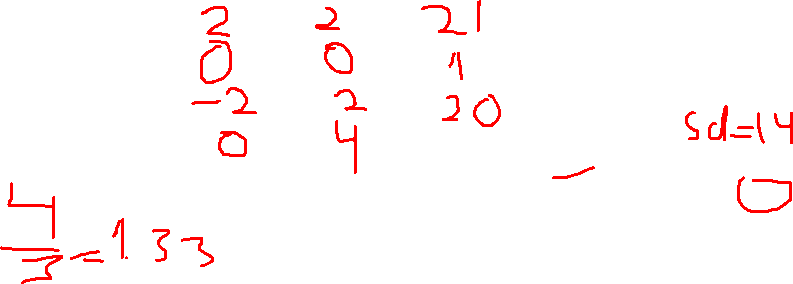 2 2 21
0 0 1
-2 2 20
0 4
sd=14
0
4
3 =1.33